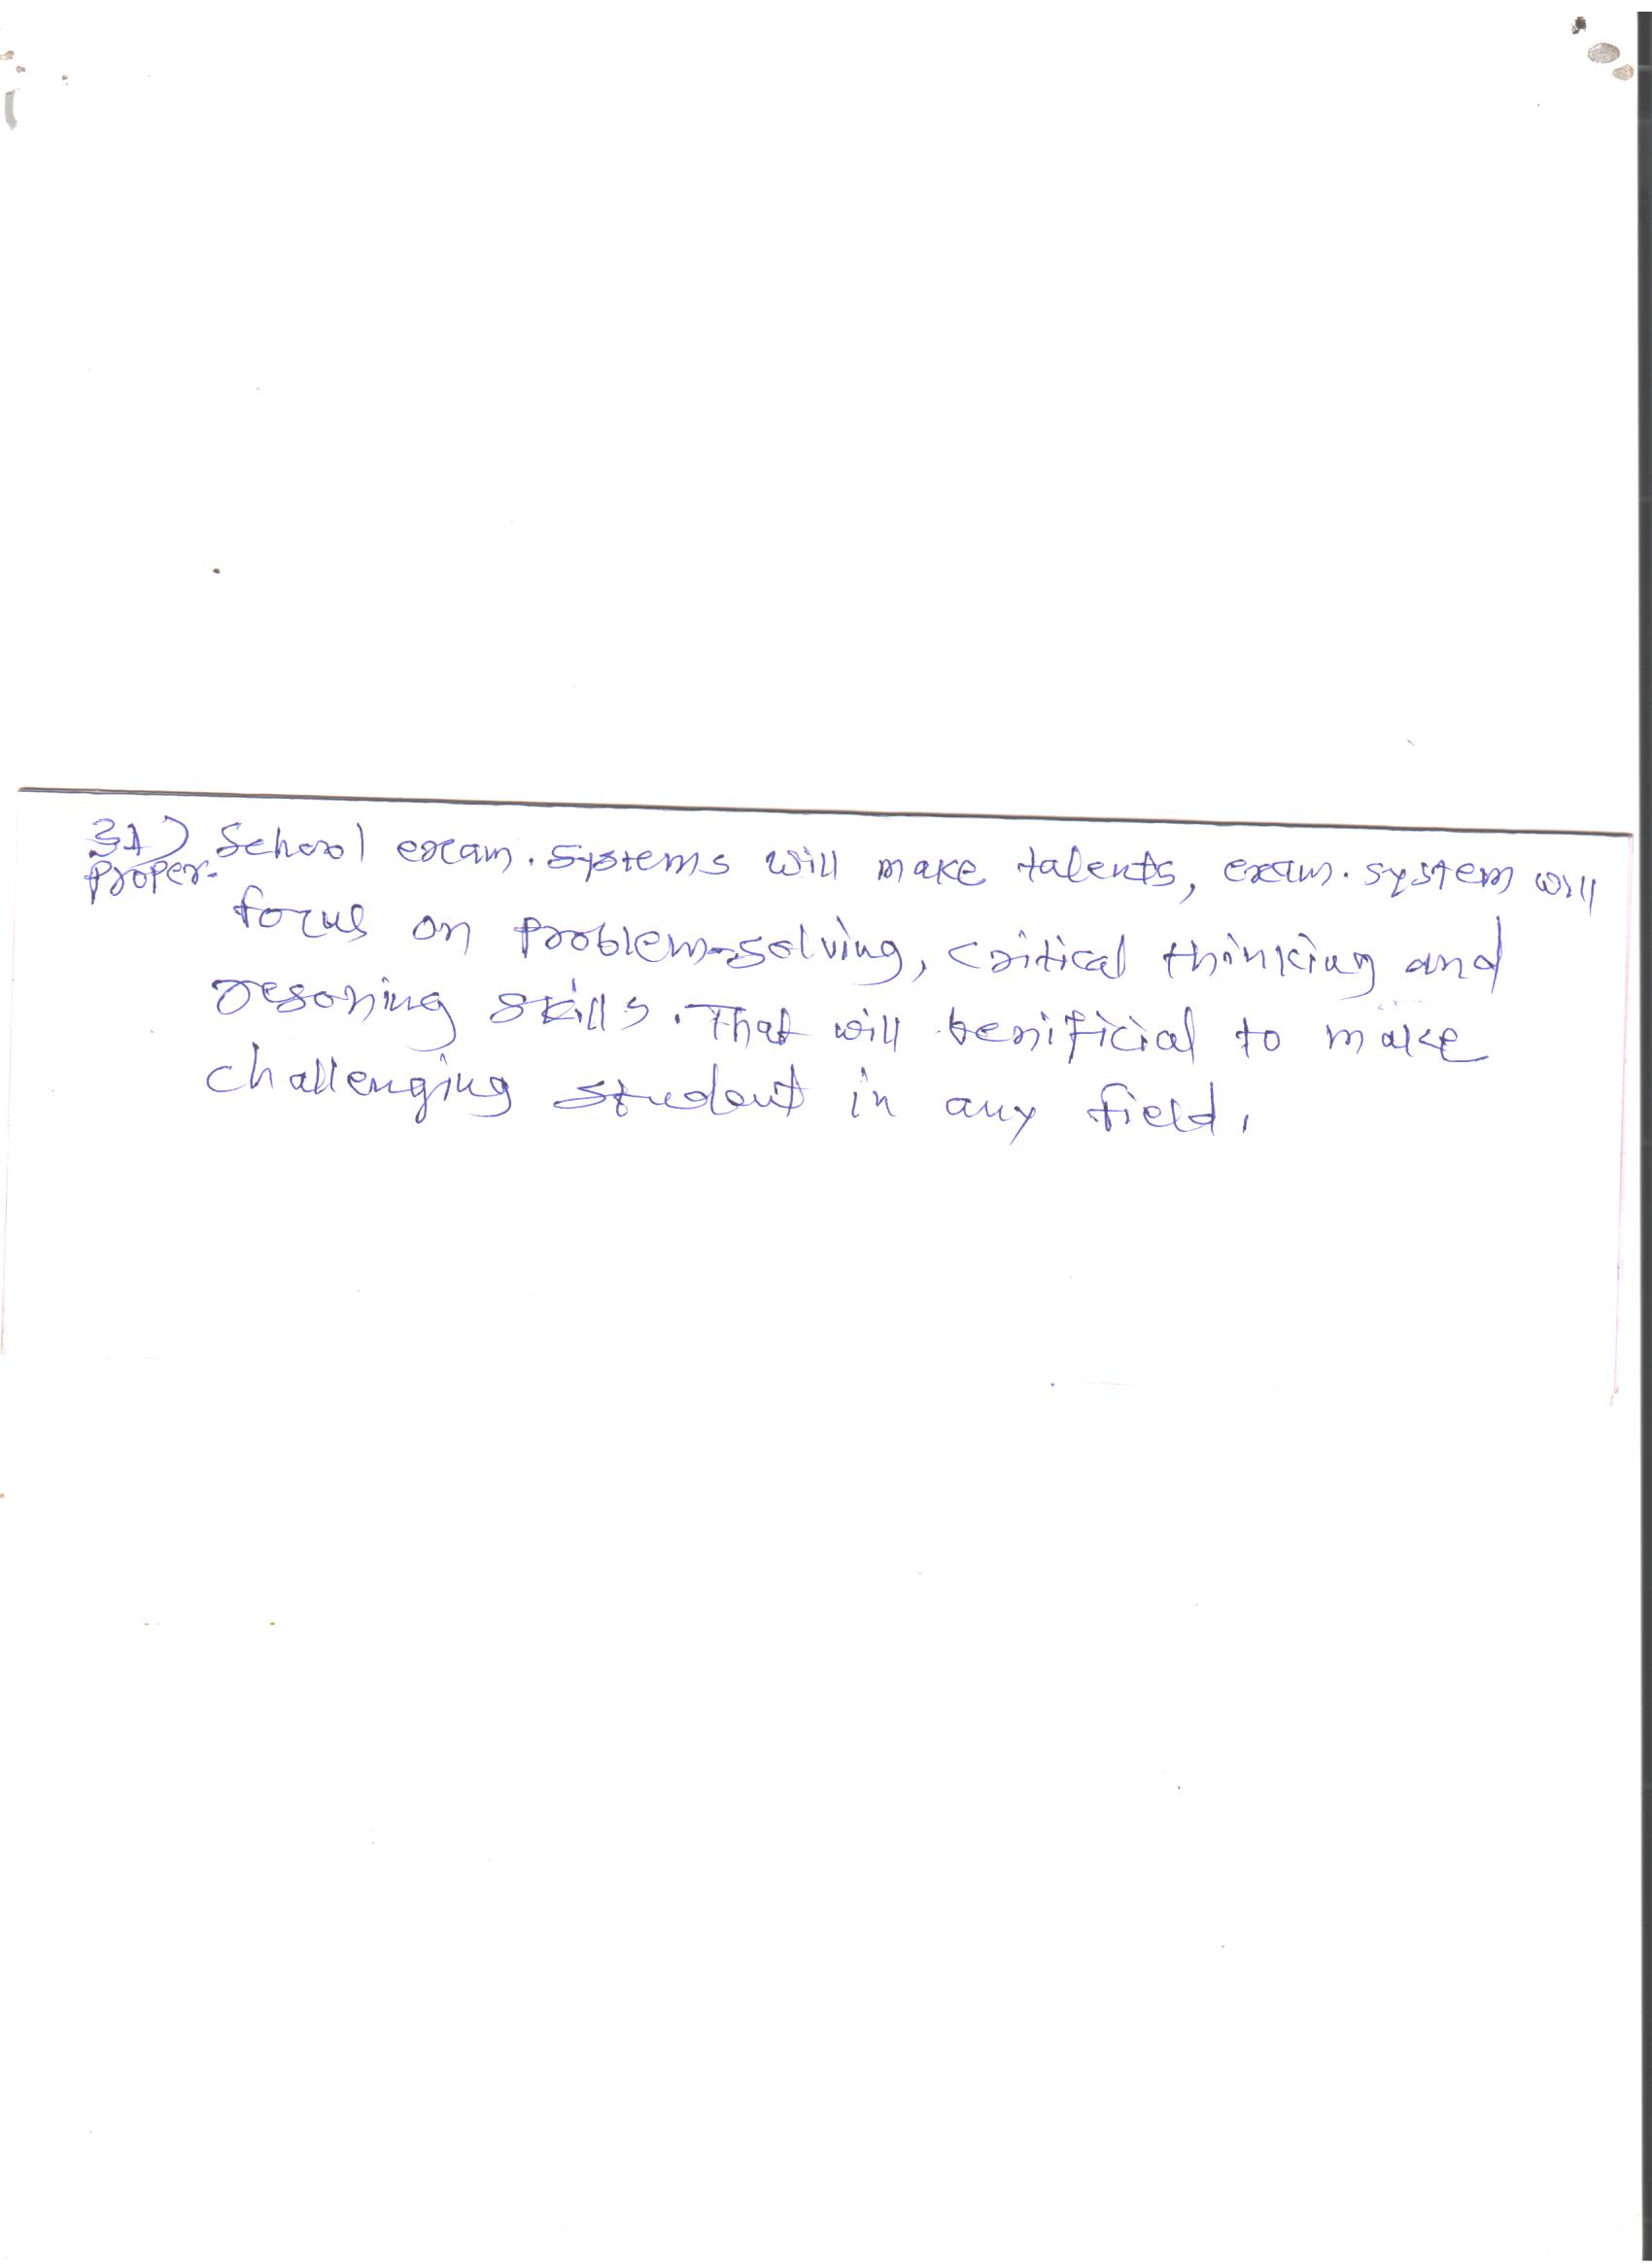 31) School exam. systems will make talents, exam. system will
Proper.
focus on problem-solving, critical thinking and
resoning skills. That will benificial to make
challenging student in any field.